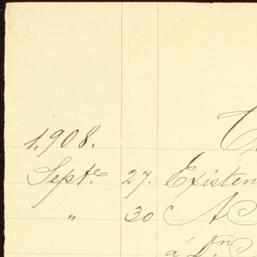 1,908.
Septe 27. Existen
" 30 A
á Dn